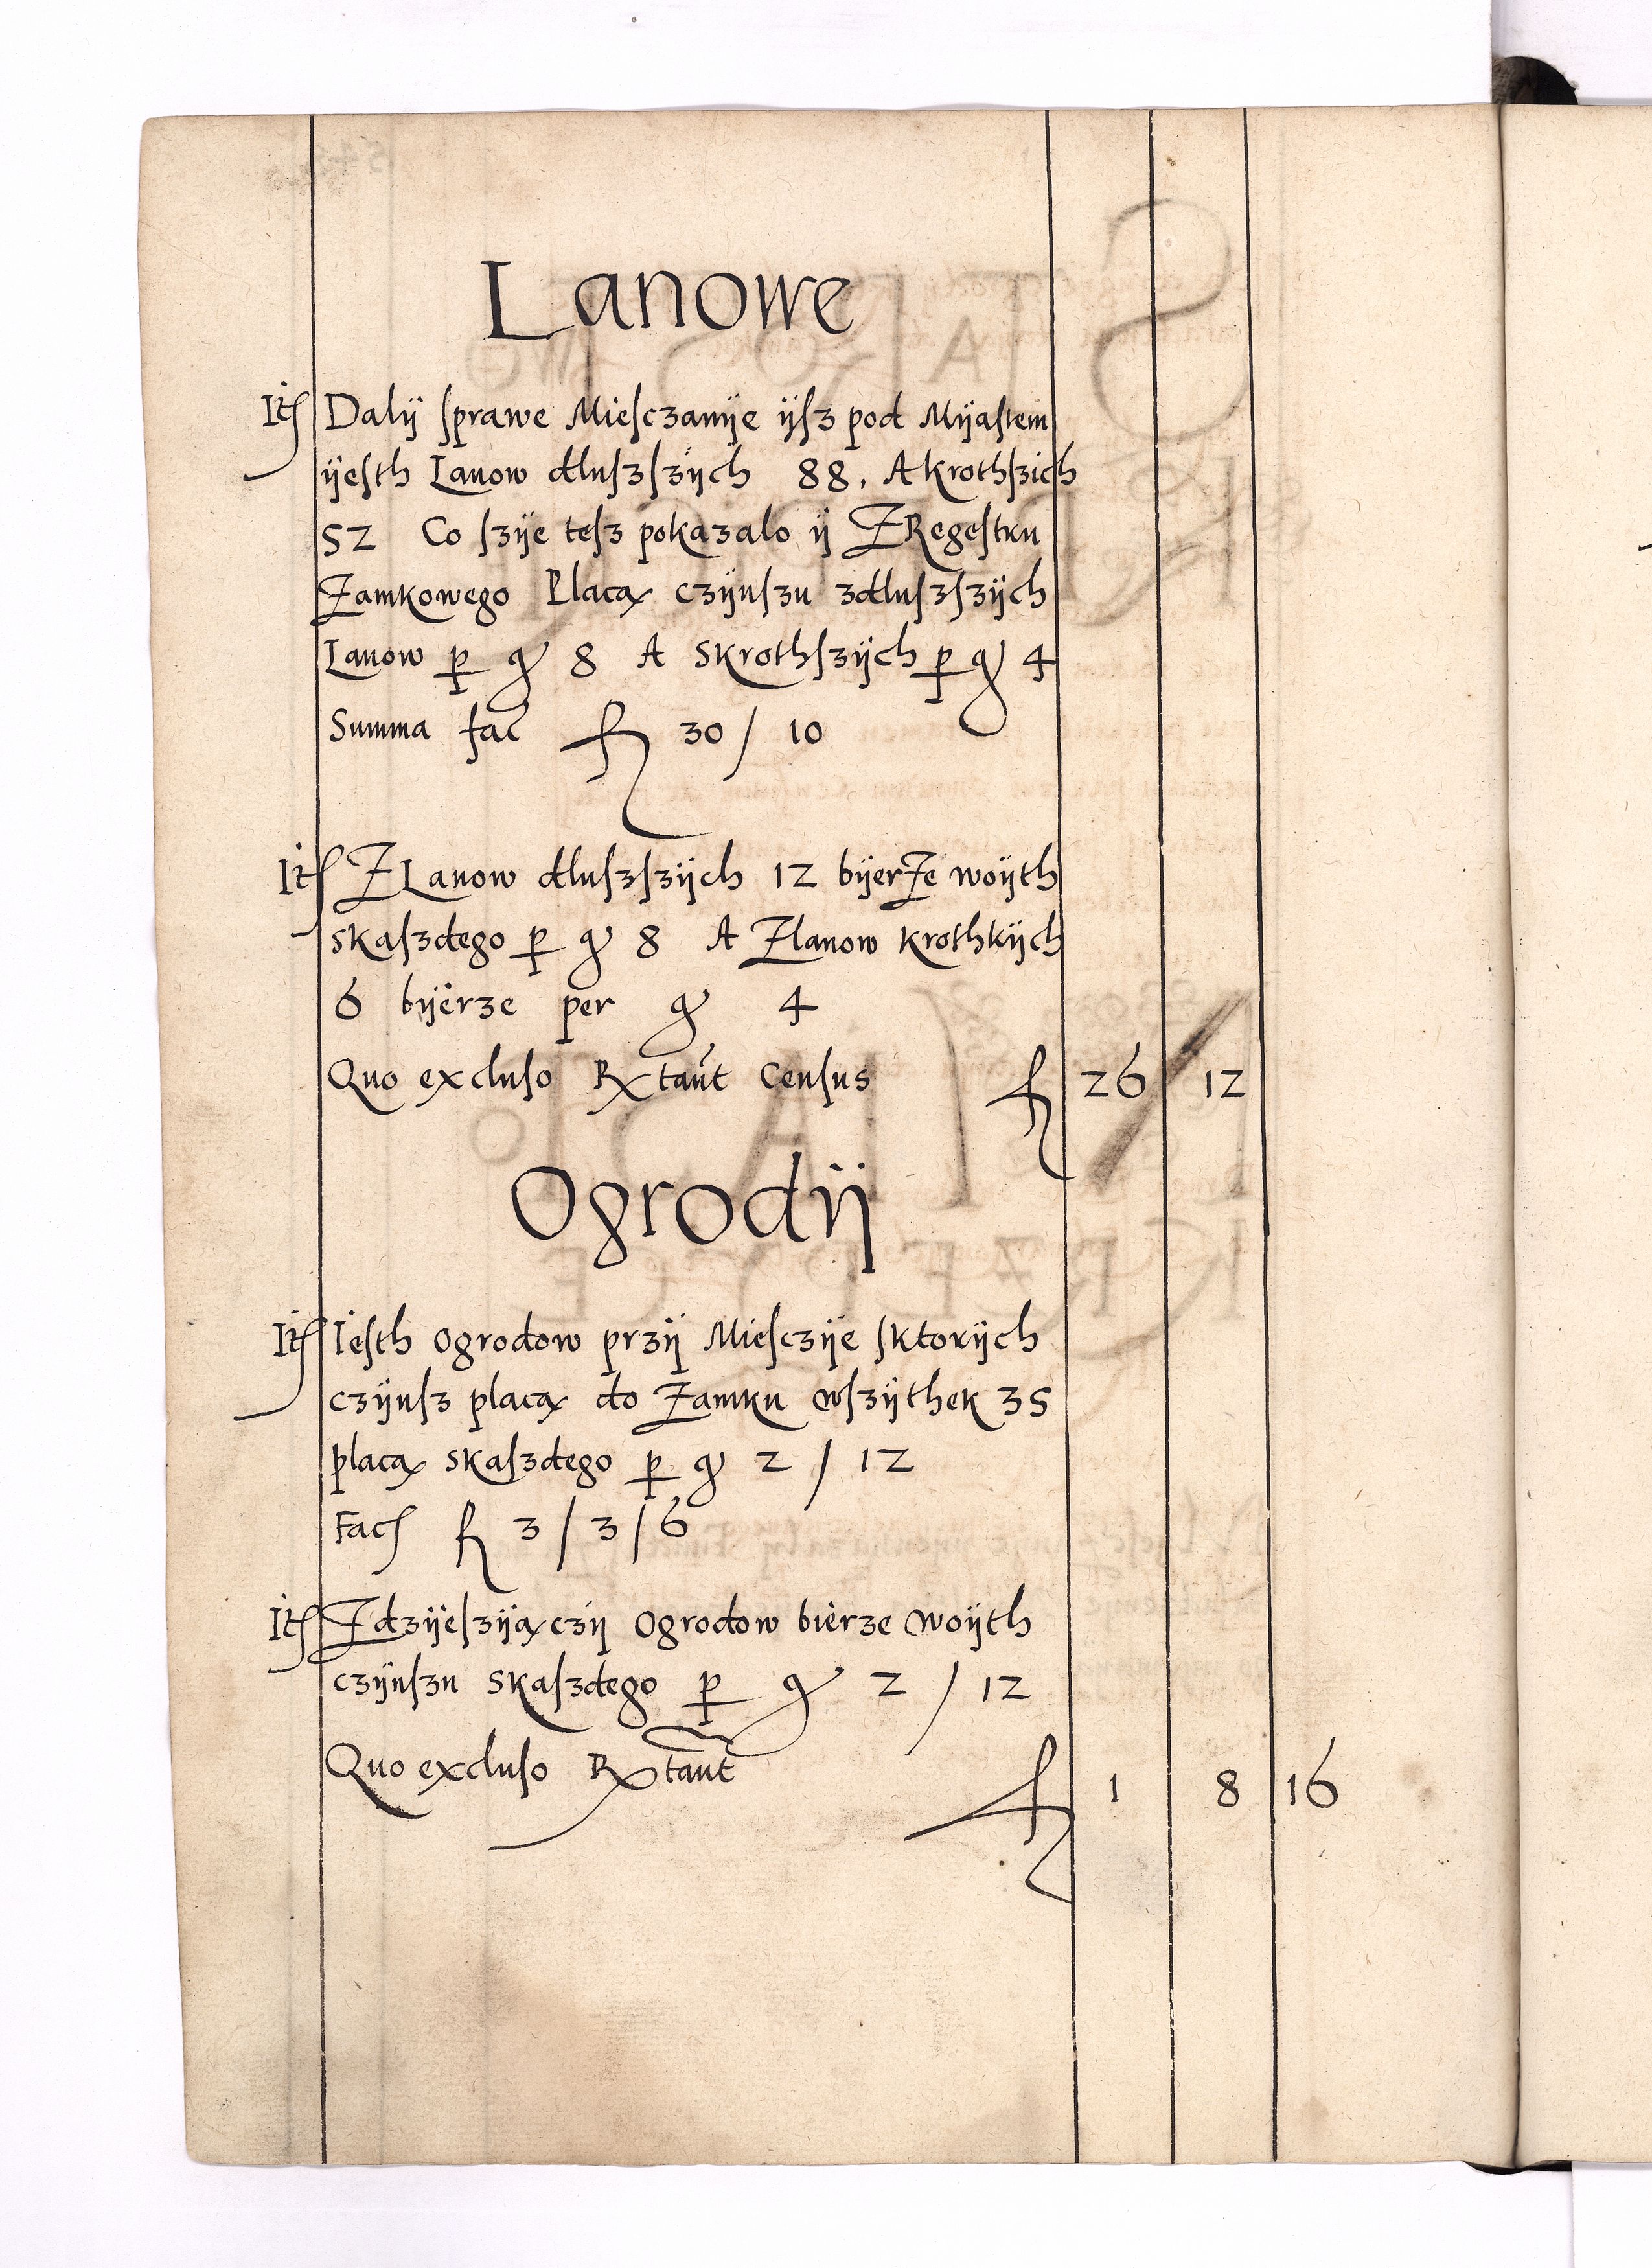 Lanowe
Itṡ Dalÿ sprawe Miesczanÿe ÿsz pod Mÿastem
ÿesth Lanow dluszszÿch 88, A krothszich
52 Co szÿe tesz pokazalo ÿ Z Regestru
Zamkowego Placą czÿnszu zdluszszÿch
Lanow p gr 8 A Skrothszÿch p gr 4
Summa fac fl 30 / 10
Itṡ Z Lanow dluszszÿch 12 bÿerze woÿth
skaszdego p gr 8 A Z lanow krothkÿch
6 bÿerze per gr 4
Quo excluso Rxtant Census fl 26 12
Ogrodÿ
Itṡ Iesth ogrodow przÿ Miesczÿe sktorÿch
czÿnsz placą do Zamku wszÿthek 35
placą skaszdego p gr 2 / 12
Fac fl 3 / 3 / 6
Itṡ Zdzÿeszÿączÿ ogrodow bierze woÿth
czÿnszu skaszdego p gr 2 / 12
Quo excluso Rxtant fl 1 8 16